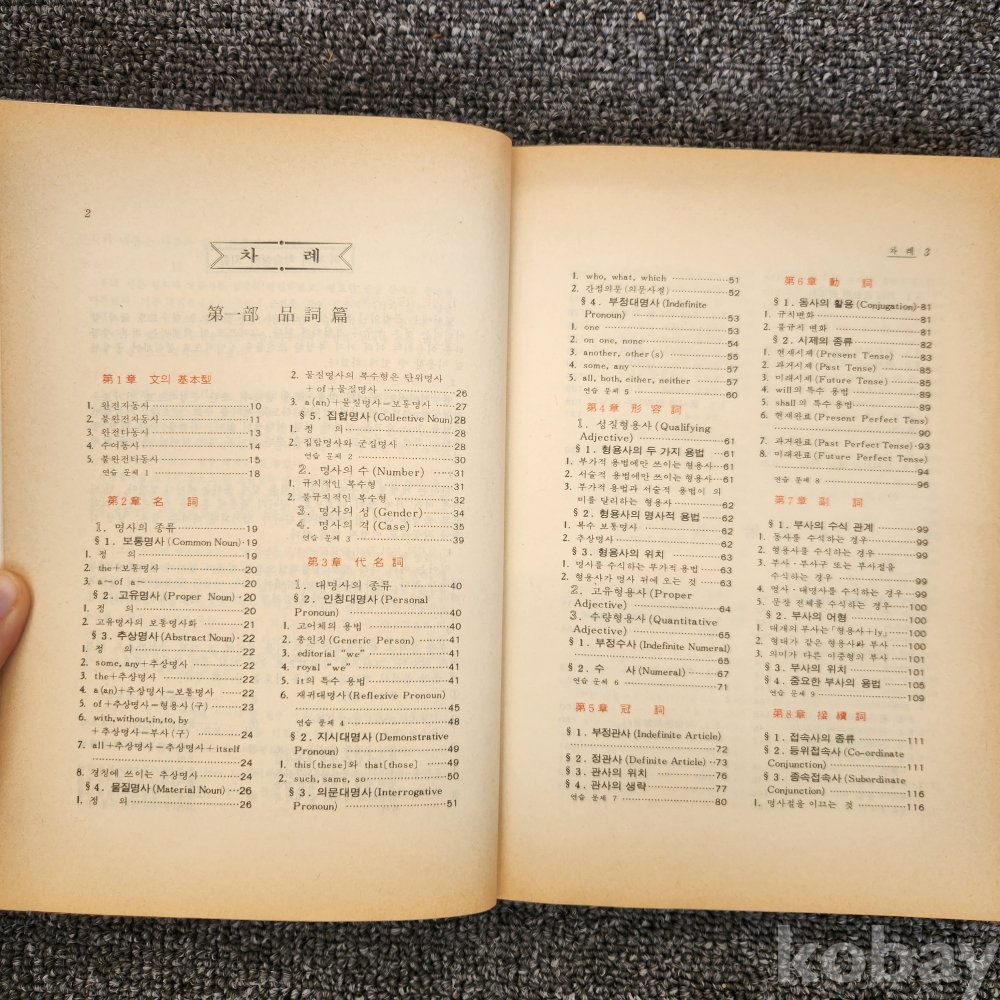 2
차 례
第一部 品詞篇
第1章 文의 基本型
1. 완전자동사 ⋯⋯ 10
2. 불완전자동사 ⋯⋯ 11
3. 완전타동사 ⋯⋯ 13
4. 수여동사 ⋯⋯ 14
5. 불완전타동사 ⋯⋯ 15
연습 문제 1 ⋯⋯ 18
第2章 名 詞
1. 명사의 종류 ⋯⋯ 19
§1. 보통명사 (Common Noun) · 19
1. 정 의 ⋯⋯ 19
2. the+보통명사 ⋯⋯ 20
3. a~of a~ ⋯⋯ 20
§2. 고유명사 (Proper Noun) · 20
1. 정 의 ⋯⋯ 20
2. 고유명사의 보통명사화 ⋯⋯ 21
§3. 추상명사 (Abstract Noun) · 22
1. 정 의 ⋯⋯ 22
2. some, any+추상명사 ⋯⋯ 22
3. the+추상명사 ⋯⋯ 22
4. a(an)+추상명사=보통명사 ⋯⋯ 22
5. of+추상명사=형용사(구) ⋯⋯ 23
6. with, without, in, to, by
+추상명사=부사(구) ⋯⋯ 24
7. all+추상명사=추상명사+itself
⋯⋯ 24
8. 경칭에 쓰이는 추상명사 ⋯⋯ 24
§4. 물질명사 (Material Noun) ⋯ 26
1. 정 의 ⋯⋯ 26
2. 물질명사의 복수형은 단위명사
+of+물질명사 ⋯⋯ 26
3. a(an)+물질명사=보통명사 ⋯⋯ 27
§5. 집합명사 (Collective Noun) 28
1. 정 의 ⋯⋯ 28
2. 집합명사와 군집명사 ⋯⋯ 28
연습 문제 2 ⋯⋯ 30
2. 명사의 수 (Number) ⋯⋯ 31
1. 규칙적인 복수형 ⋯⋯ 31
2. 불규칙적인 복수형 ⋯⋯ 32
3. 명사의 성 (Gender) ⋯⋯ 34
4. 명사의 격 (Case) ⋯⋯ 35
연습 문제 3 ⋯⋯ 39
第3章 代名詞
1. 대명사의 종류 ⋯⋯ 40
§2. 인칭대명사 (Personal
Pronoun) ⋯⋯ 40
1. 고어체의 용법 ⋯⋯ 40
2. 총인칭 (Generic Person) ⋯⋯ 41
3. editorial “we” ⋯⋯ 41
4. royal “we” ⋯⋯ 41
5. it의 특수 용법 ⋯⋯ 41
6. 재귀대명사 (Reflexive Pronoun)
⋯⋯ 45
연습 문제 4 ⋯⋯ 48
§2. 지시대명사 (Demonstrative
Pronoun) ⋯⋯ 49
1. this[these]와 that[those] ⋯⋯ 49
2. such, same, so ⋯⋯ 50
§3. 의문대명사 (Interrogative
Pronoun) ⋯⋯ 51
차 례 3
1. who, what, which ⋯⋯ 51
2. 간접의문(의문사절) ⋯⋯ 52
§4. 부정대명사 (Indefinite
Pronoun) ⋯⋯ 53
1. one ⋯⋯ 53
2. on one, none ⋯⋯ 54
3. another, other(s) ⋯⋯ 55
4. some, any ⋯⋯ 57
5. all, both, either, neither ⋯⋯ 57
연습 문제 5 ⋯⋯ 60
第4章 形容詞
1. 성질형용사 (Qualifying
Adjective) ⋯⋯ 61
§1. 형용사의 두 가지 용법 ⋯ 61
1. 부가적 용법에만 쓰이는 형용사 ⋯ 61
2. 서술적 용법에만 쓰이는 형용사 ⋯ 62
3. 부가적 용법과 서술적 용법이 의
미를 달리하는 형용사 ⋯⋯ 62
§2. 형용사의 명사적 용법 ⋯⋯ 62
1. 복수 보통명사 ⋯⋯ 62
2. 추상명사 ⋯⋯ 62
§3. 형용사의 위치 ⋯⋯ 63
1. 명사를 수식하는 부가적 용법 ⋯ 63
2. 형용사가 명사 뒤에 오는 것 ⋯⋯ 63
2. 고유형용사 (Proper
Adjective) ⋯⋯ 64
3. 수량형용사 (Quantitative
Adjective) ⋯⋯ 65
§1. 부정수사 (Indefinite Numeral)
⋯⋯ 65
§2. 수 사 (Numeral) ⋯⋯ 67
연습 문제 6 ⋯⋯ 71
第5章 冠 詞
§1. 부정관사 (Indefinite Article)
⋯⋯ 72
§2. 정관사 (Definite Article) ⋯ 73
§3. 관사의 위치 ⋯⋯ 76
§4. 관사의 생략 ⋯⋯ 77
연습 문제 7 ⋯⋯ 80
第6章 動 詞
§1. 동사의 활용 (Conjugation) · 81
1. 규칙변화 ⋯⋯ 81
2. 불규칙 변화 ⋯⋯ 81
§2. 시제의 종류 ⋯⋯ 82
1. 현재시제 (Present Tense) ⋯⋯ 83
2. 과거시제 (Past Tense) ⋯⋯ 85
3. 미래시제 (Future Tense) ⋯⋯ 85
4. will의 특수 용법 ⋯⋯ 89
5. shall의 특수 용법 ⋯⋯ 89
6. 현재완료 (Present Perfect Tens)
⋯⋯ 90
7. 과거완료 (Past Perfect Tense) · 93
8. 미래완료 (Future Perfect Tense)
⋯⋯ 94
연습 문제 8 ⋯⋯ 96
第7章 副 詞
§1. 부사의 수식 관계 ⋯⋯ 99
1. 동사를 수식하는 경우 ⋯⋯ 99
2. 형용사를 수식하는 경우 ⋯⋯ 99
3. 부사·부사구 또는 부사절을
수식하는 경우 ⋯⋯ 99
4. 명사·대명사를 수식하는 경우 ⋯ 99
5. 문장 전체를 수식하는 경우 ⋯⋯ 100
§2. 부사의 어형 ⋯⋯ 100
1. 대개의 부사는 「형용사+ly」 ⋯⋯ 100
2. 형태가 같은 형용사와 부사 ⋯⋯ 100
3. 의미가 다른 이중형의 부사 ⋯⋯ 101
§3. 부사의 위치 ⋯⋯ 101
§4. 중요한 부사의 용법 ⋯⋯ 105
연습 문제 9 ⋯⋯ 109
第8章 接續詞
§1. 접속사의 종류 ⋯⋯ 111
§2. 등위접속사 (Co-ordinate
Conjunction) ⋯⋯ 111
§3. 종속접속사 (Subordinate
Conjunction) ⋯⋯ 116
1. 명사절을 이끄는 것 ⋯⋯ 116
kobay